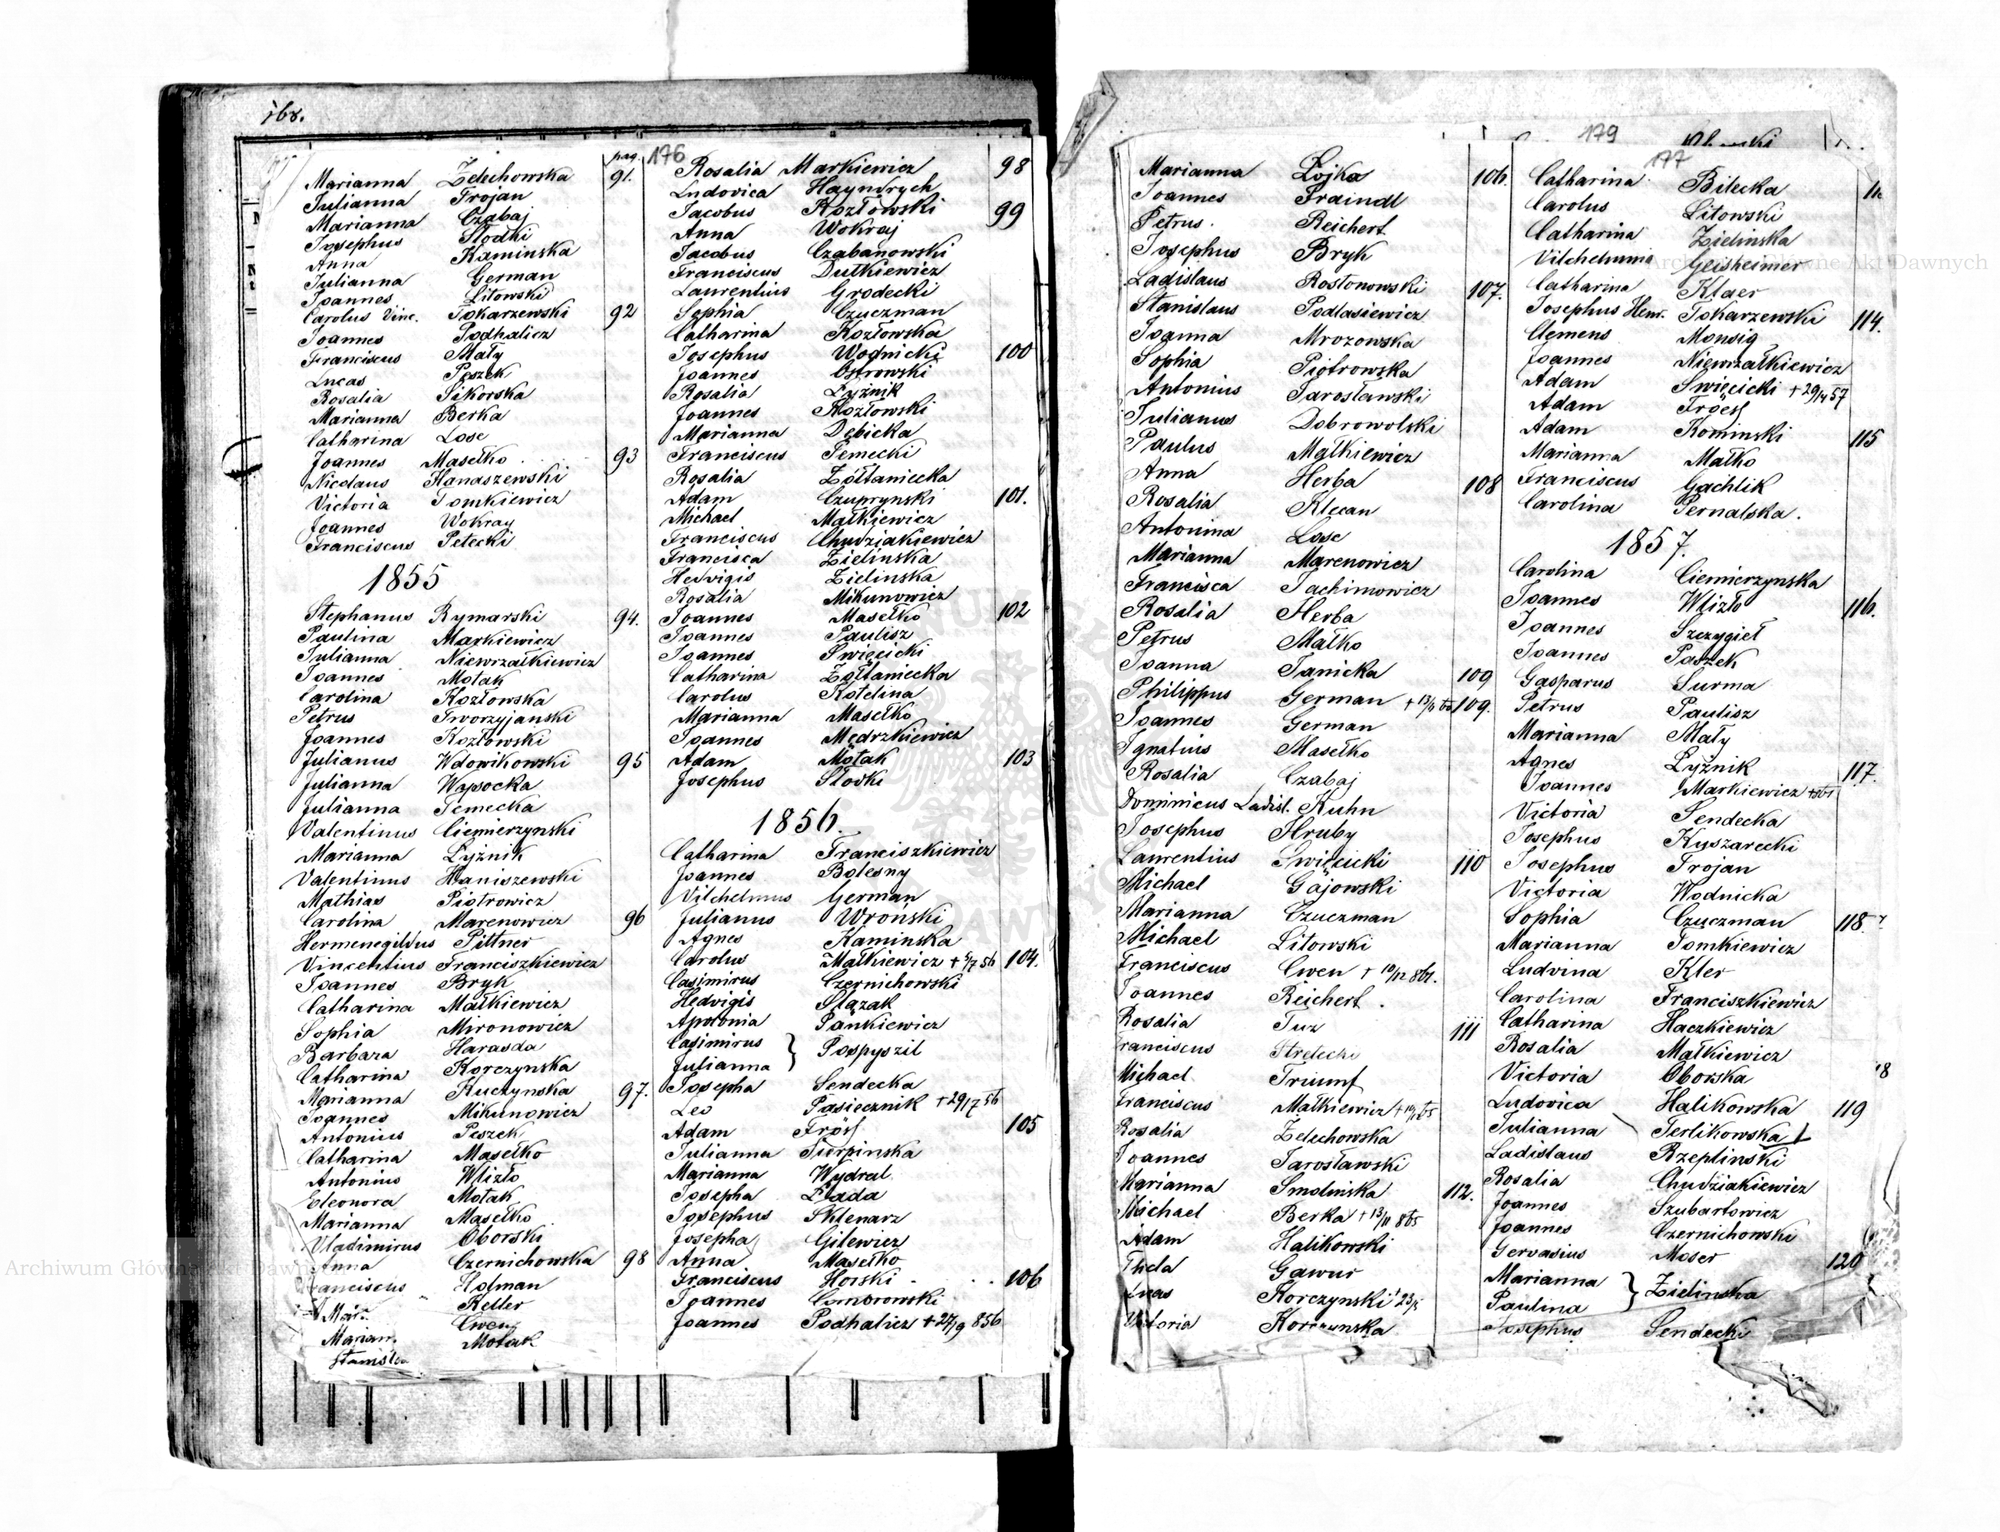 168.
pag. 176
Marianna Żelechowska 91.
Julianna Trojan
Marianna Czabaj
Josephus Słodki
Anna Kaminska
Julianna German
Joannes Litowski
Carolus Vinc. Tokarzewski 92
Joannes Podhalicz
Franciscus Mały
Lucas Peszek
Rosalia Sikorska
Marianna Berka
Catharina Lose
Joannes Masełko 93
Nicolaus Hanaszewski
Victoria Tomkiewicz
Joannes Wokray
Franciscus Petecki
1855
Stephanus Rymarski 94.
Paulina Markiewicz
Julianna Niewrzałkiewicz
Joannes Motak
Carolina Kozłowska
Petrus Tworzyjanski
Joannes Kozłowski
Julianus Wdowikowski 95
Julianna Wąsocka
Julianna Temecka
Valentinus Ciemierzynski
Marianna Łyżnik
Valentinus Haniszewski
Mathias Piotrowicz
Carolina Marenowicz 96
Hermenegildus Pittner
Vincentius Franciszkiewicz
Joannes Bryk
Catharina Małkiewicz
Sophia Mironowicz
Barbara Harasda
Catharina Korczynska
Marianna Ruczynska 97.
Joannes Mikunowicz
Antonius Peszek
Catharina Masełko
Antonius Wlizło
Eleonora Motak
Marianna Masełko
Vladimirus Oborski
Anna Czernichowska 98
Franciscus Holman
Keller
Cwen
Motak
Rosalia Markiewicz 98
Ludovica Hayndrych
Jacobus Kozłowski 99
Anna Wokraj
Jacobus Czabanowski
Franciscus Dutkiewicz
Laurentius Grodecki
Sophia Czuczman
Catharina Kozłowska
Josephus Wodnicki 100
Joannes Ostrowski
Rosalia Łyżnik
Joannes Kozłowski
Marianna Dębicka
Franciscus Temecki
Rosalia Żółtaniecka
Adam Czuprynski 101.
Michael Małkiewicz
Franciscus Chudziakiewicz
Francisca Zielinska
Hedvigis Zielinska
Rosalia Mikunowicz
Joannes Masełko 102
Joannes Paulisz
Joannes Swięcicki
Catharina Żółtaniecka
Carolus Kotelina
Marianna Masełko
Joannes Mędrzkiewicz
Adam Motak 103
Josephus Słodki
1856.
Catharina Franciszkiewicz
Joannes Bolesny
Vilchelmus German
Julianus Wroński
Agnes Kaminska
Carolus Małkiewicz + 5/7 56 104.
Casimirus Czernichowski
Hedvigis Slązak
Apolonia Pankiewicz
Casimirus } Pospyszil
Julianna
Josepha Sendecka
Leo Pasiecznik + 29/7 56
Adam Frösl 105
Julianna Sierpinska
Marianna Wydral
Josepha Łada
Josephus Sklenarz
Josepha Gilewicz
Anna Masełko
Franciscus Horski 106
Joannes Comorowski
Joannes Podhalicz + 27/9 856
179
177
Marianna Łojka 106.
Joannes Fraindl
Petrus Reichert
Josephus Bryk
Ladislaus Rostonowski 107.
Stanislaus Podlasiewicz
Joanna Mrozowska
Sophia Piotrowska
Antonius Jarosławski
Julianus Dobrowolski
Paulus Małkiewicz
Anna Herba 108
Rosalia Klecan
Antonina Lose
Marianna Marenowicz
Francisca Jachimowicz
Rosalia Herba
Petrus Małko
Joanna Janicka 109
Philippus German 109.
Joannes German
Ignatius Masełko
Rosalia Czabaj
Dominicus Ladisl. Kuhn
Josephus Hruby
Laurentius Swięcicki 110
Michael Gajowski
Marianna Czuczman
Michael Litowski
Franciscus Cwen + 10/12 861.
Joannes Reichert
Rosalia Tuz 111
Franciscus Strelecki
Michael Triumf
Franciscus Małkiewicz
Rosalia Żelechowska
Joannes Jarosławski
Marianna Smolińska 112.
Michael Berka + 13/11 865
Adam Halikowski
Thecla Gawur
Lucas Korczynski
Victoria Korczynska
Catharina Bilecka
Carolus Litowski
Catharina Zielinska
Vilchelmina Geisheimer
Catharina Klaer
Josephus Henr. Tokarzewski 114.
Clemens Monsig
Joannes Niewrzałkiewicz
Adam Swięcicki + 29/4 57
Adam Frösl
Adam Kominski 115
Marianna Małko
Franciscus Gachlik
Carolina Pernalska.
1857.
Carolina Ciemierzynska
Joannes Wlizło 116.
Joannes Szczygieł
Joannes Paszek
Gasparus Surma
Petrus Paulisz
Marianna Mały
Agnes Łyżnik 117.
Joannes Markiewicz
Victoria Sendecka
Josephus Kuszarecki
Josephus Trojan
Victoria Wodnicka
Sophia Czuczman 118.
Marianna Tomkiewicz
Ludvina Kler
Carolina Franciszkiewicz
Catharina Haczkiewicz
Rosalia Małkiewicz
Victoria Oborska
Ludovica Halikowska 119
Julianna Terlikowska
Ladislaus Rzeplinski
Rosalia Chudziakiewicz
Joannes Szubartowicz
Joannes Czernichowski
Gervasius Moser 120
Marianna } Zielinska
Paulina
Josephus Sendecki
Archiwum Główne Akt Dawnych
Archiwum Główne Akt Dawnych